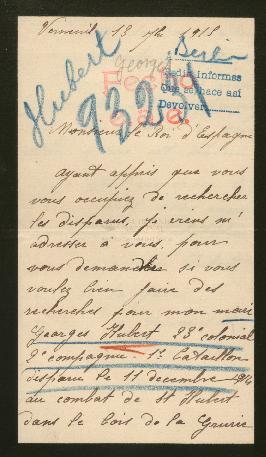 Verneuil 13 1915
Berlin
Georges
Hubert
Pedir informes
Que se hace así
Devolver
Fecho
932
Monsieur le Roi d'Espagne
Ayant appris que vous
vous occupiez de rechercher
les disparus, je viens m'
adresser à vous, pour
vous demander si vous
voulez bien faire des
recherches pour mon mari
Georges Hubert 23e colonial
2e compagnie 1r Bataillon
disparu le 11 decembre 1914
au combat de St Hubert
dans le bois de la Grurie